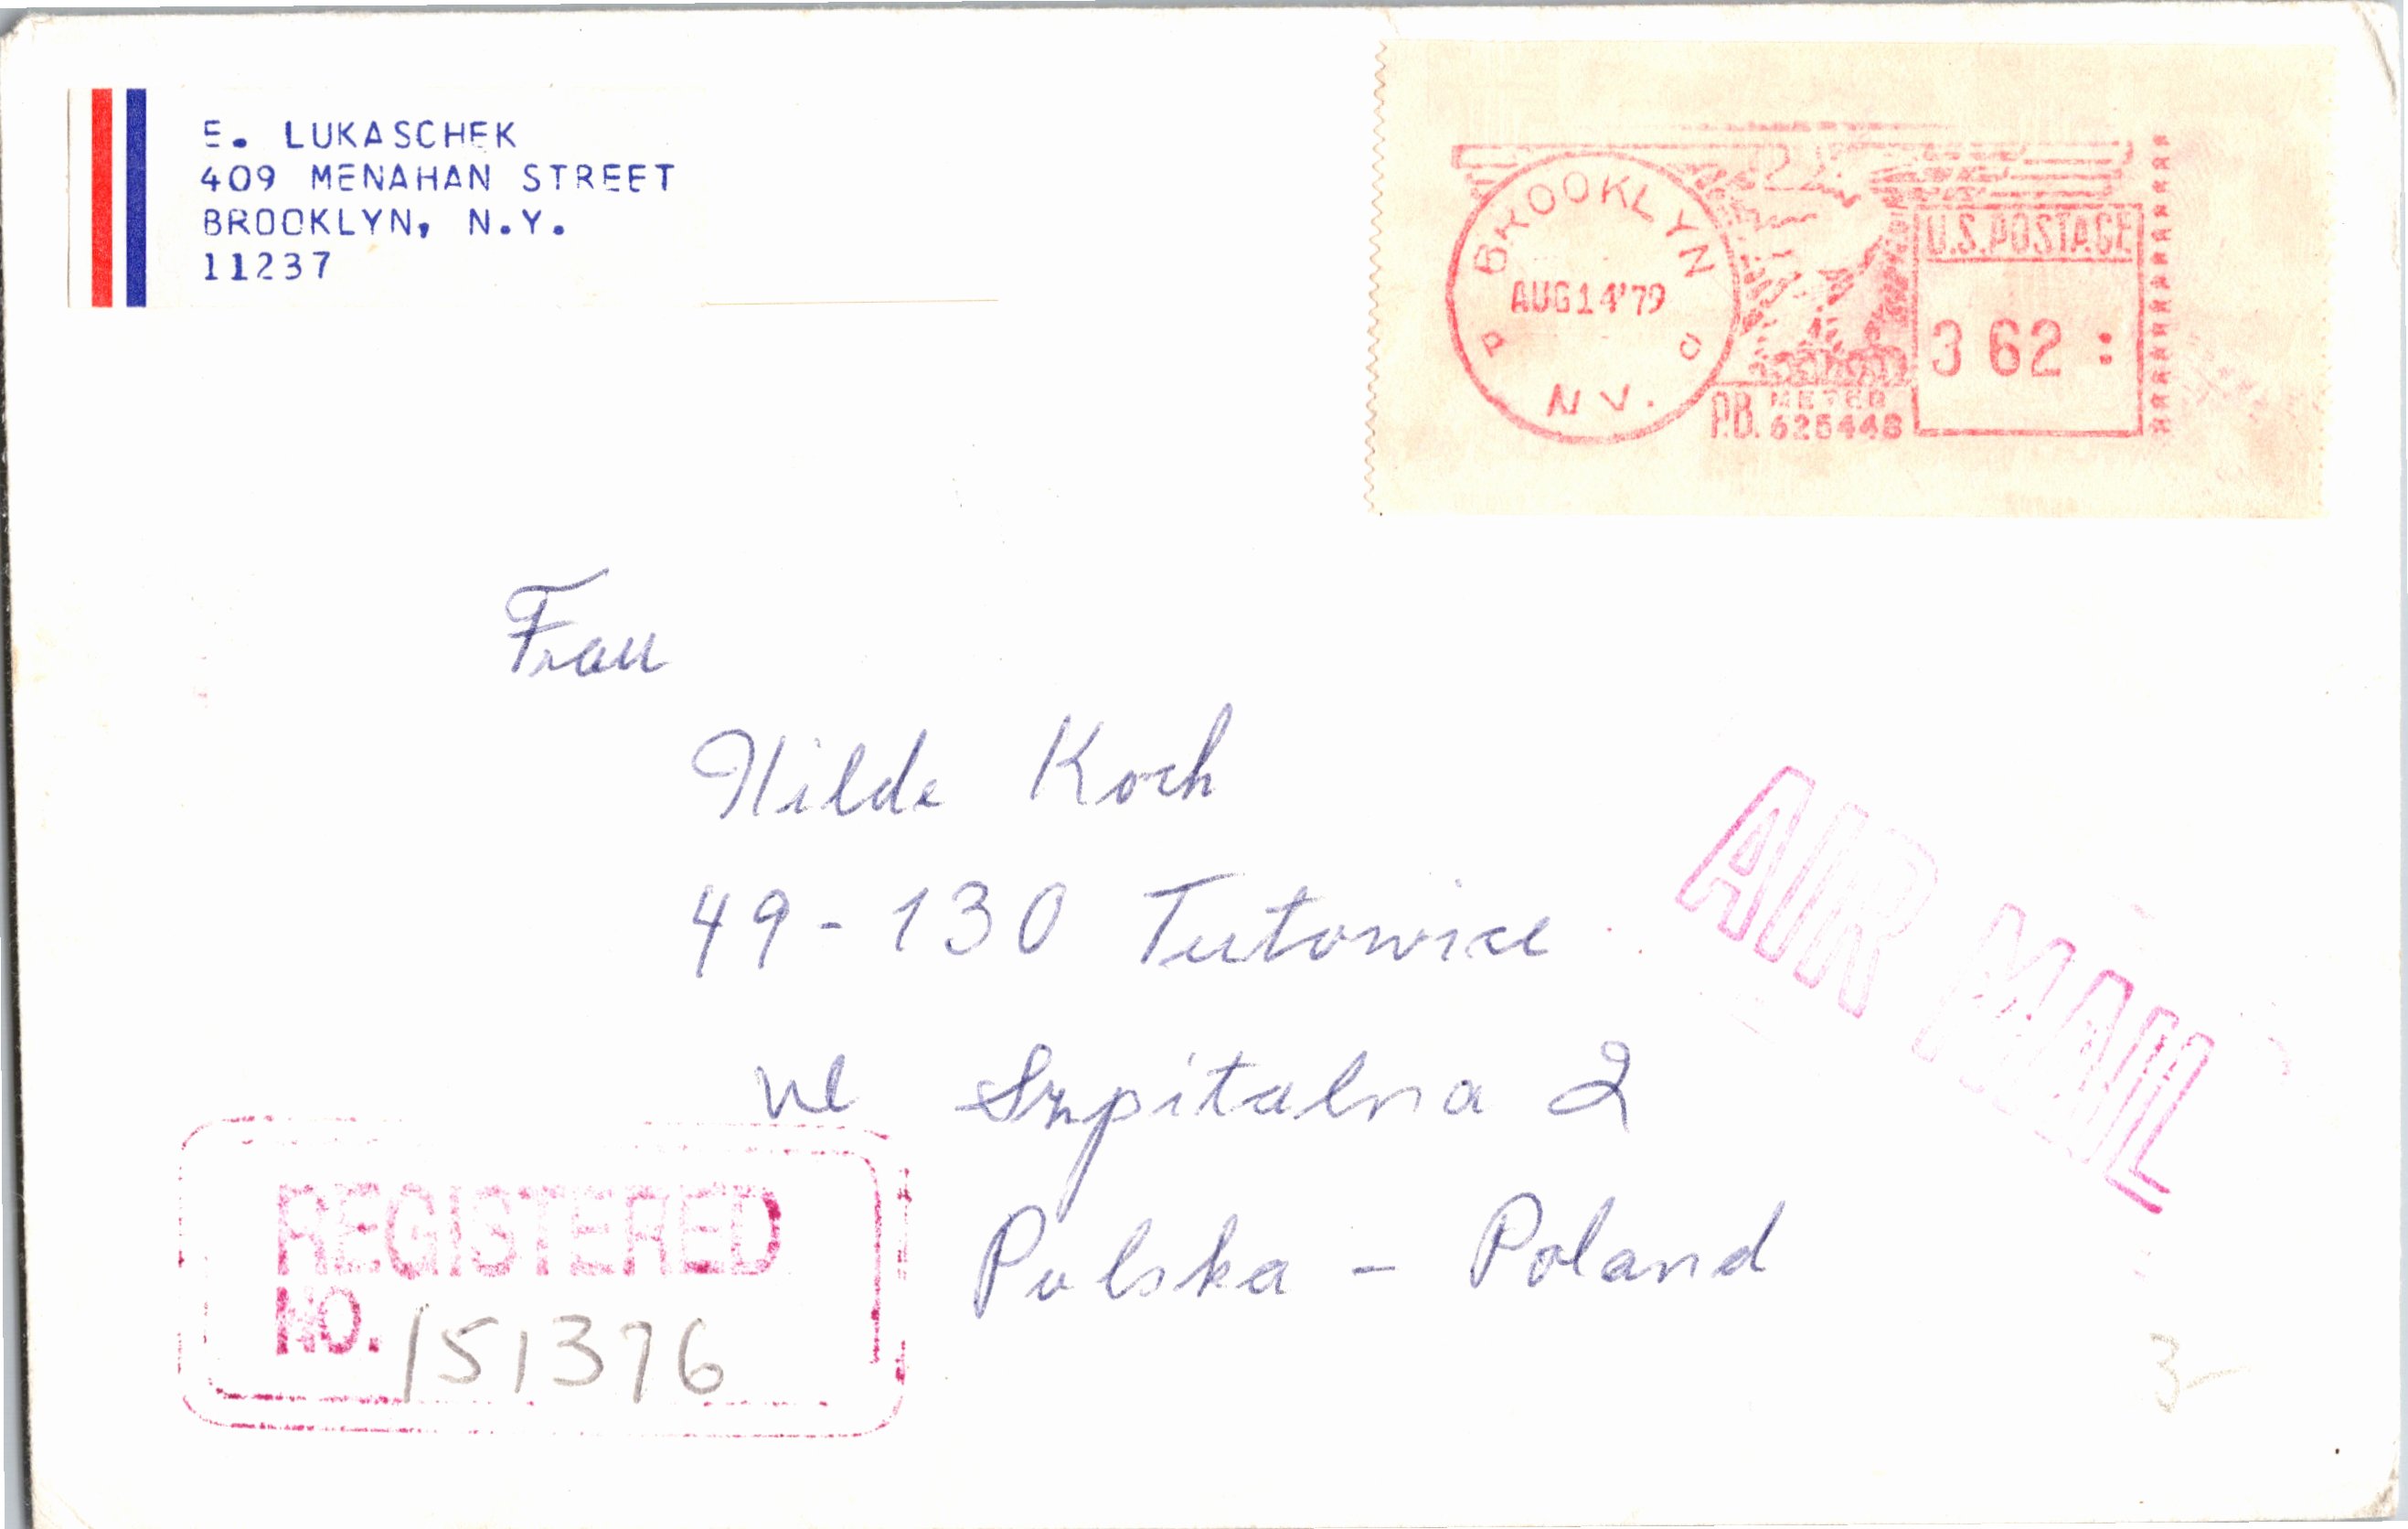 E. LUKASCHEK
409 MENAHAN STREET
BROOKLYN, N.Y.
11237
BROOKLYN
AUG 14 '79
P O
N.Y.
U.S. POSTAGE
3 62
P.B. METER
625448
Frau
Hilde Koch
49-130 Tutowice
ul Szpitalna 2
Polska - Poland
AIR MAIL
REGISTERED
NO. 151376
3-